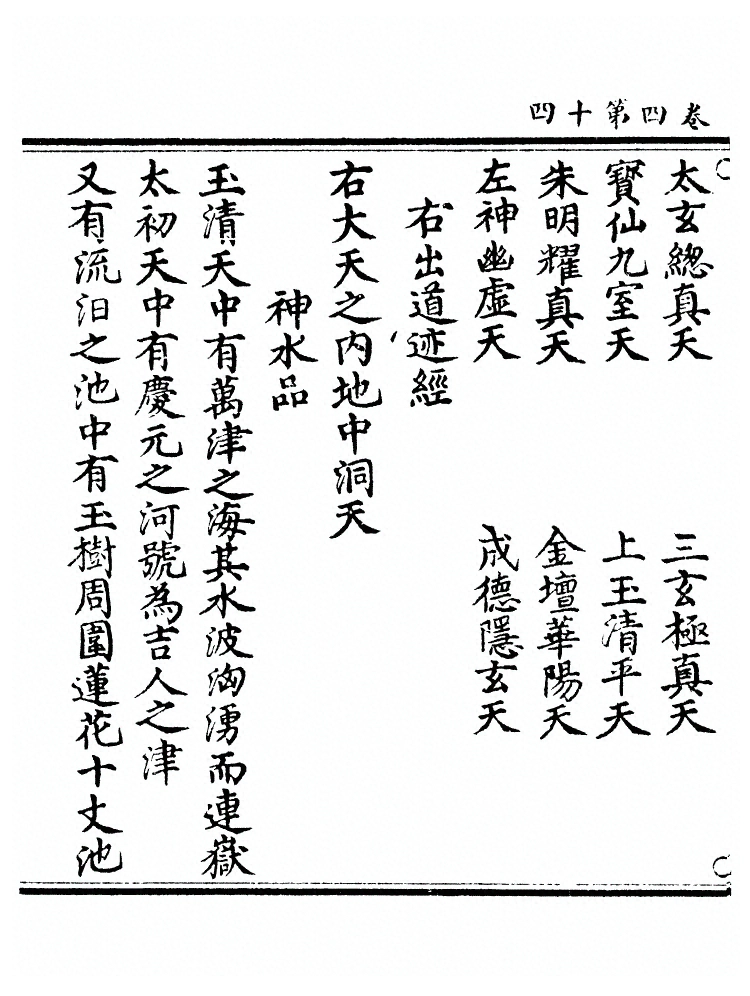 卷四第十四
太玄總真天　三玄極真天
寳仙九室天　上玉清平天
朱明耀真天　金壇華陽天
左神幽虛天　成德隱玄天
右出道迹經
右大天之内地中洞天
神水品
玉清天中有萬津之海其水波洶湧而連嶽
太初天中有慶元之河號為吉人之津
又有流汨之池中有玉樹周圍蓮花十丈池